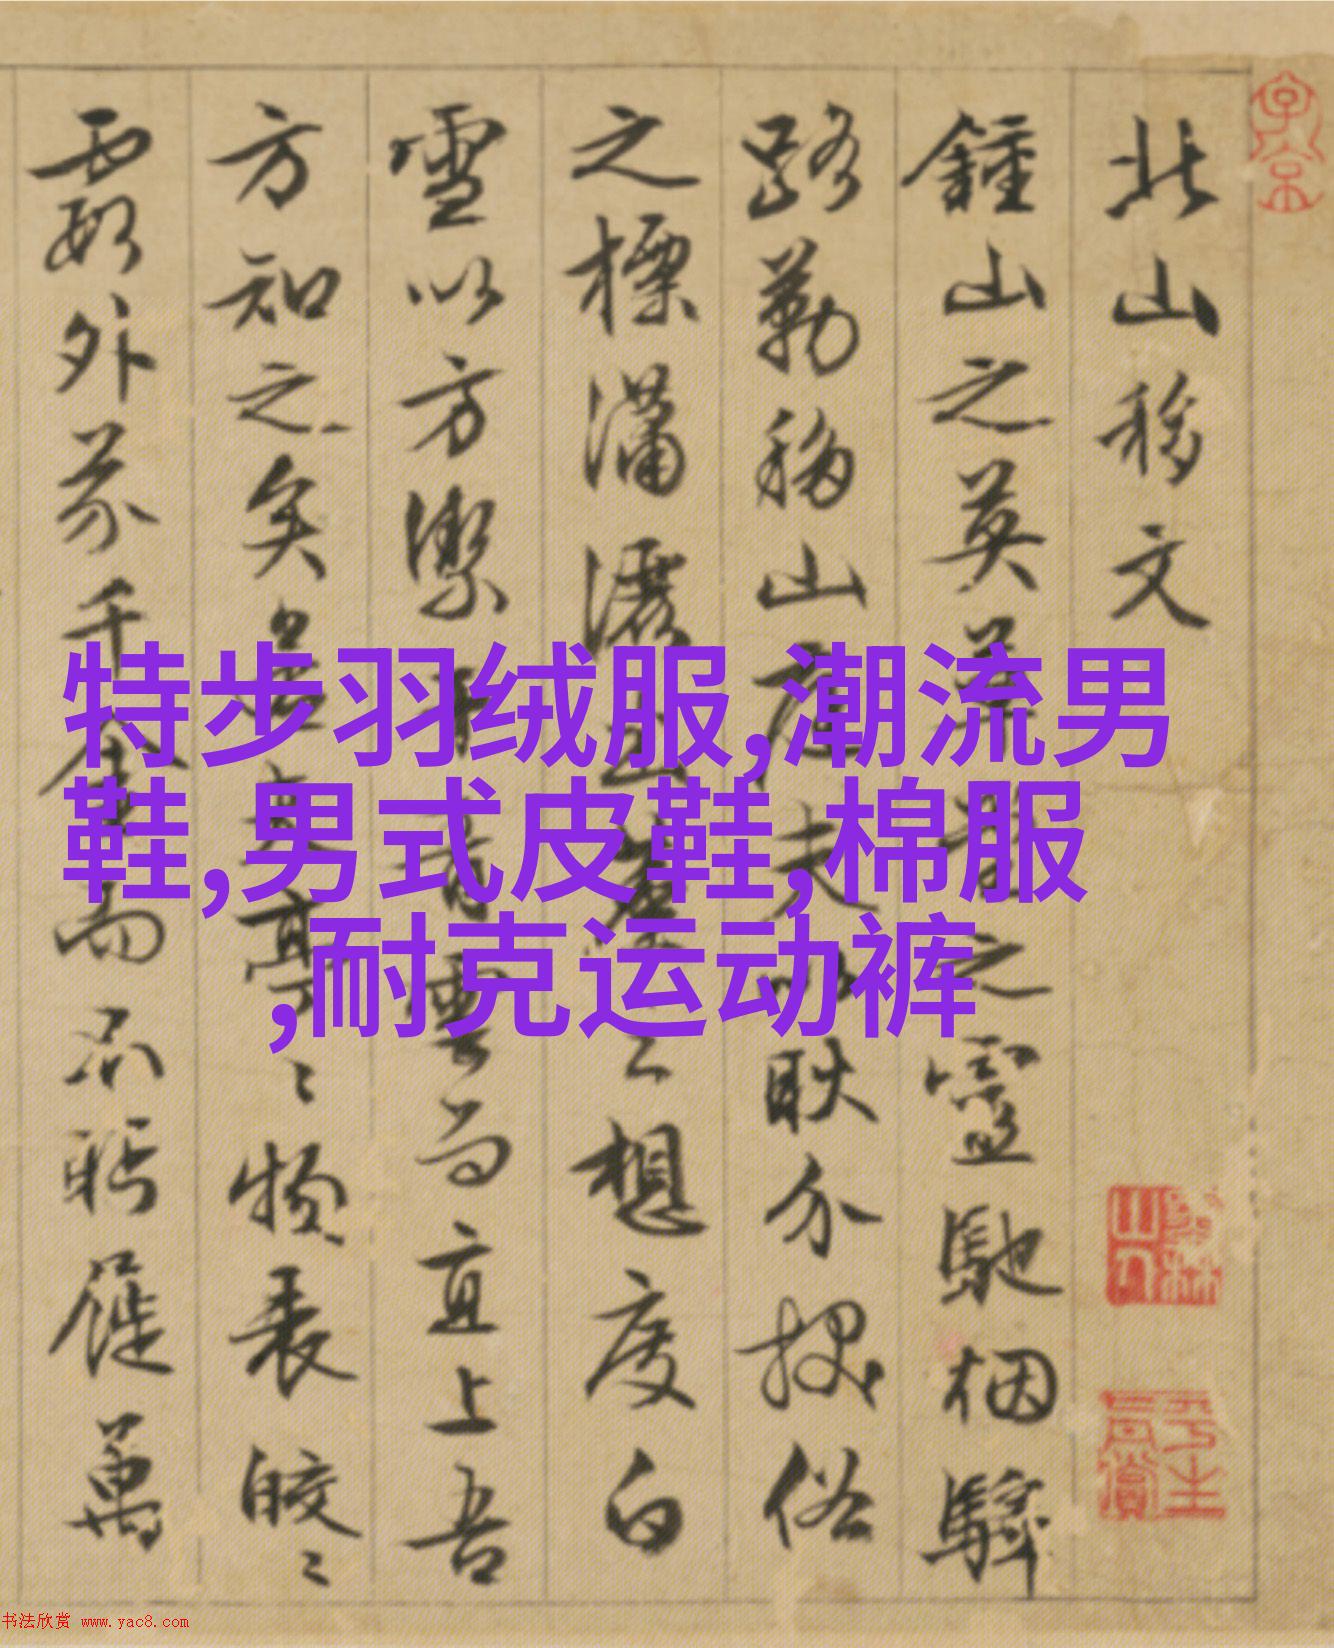 子京
北山移文
墨林山人
平生真賞
鍾山之英草堂之靈馳烟驛
路勒移山庭夫以耿介拔俗
之標瀟灑出塵之想度白
雪以方潔干青雲而直上吾
方知之矣若其亭〻物表皎〻
霞外芥千金而不眄屣萬
特步羽绒服,潮流男
鞋,男式皮鞋,棉服
,耐克运动裤
书法欣赏 www.yac8.com